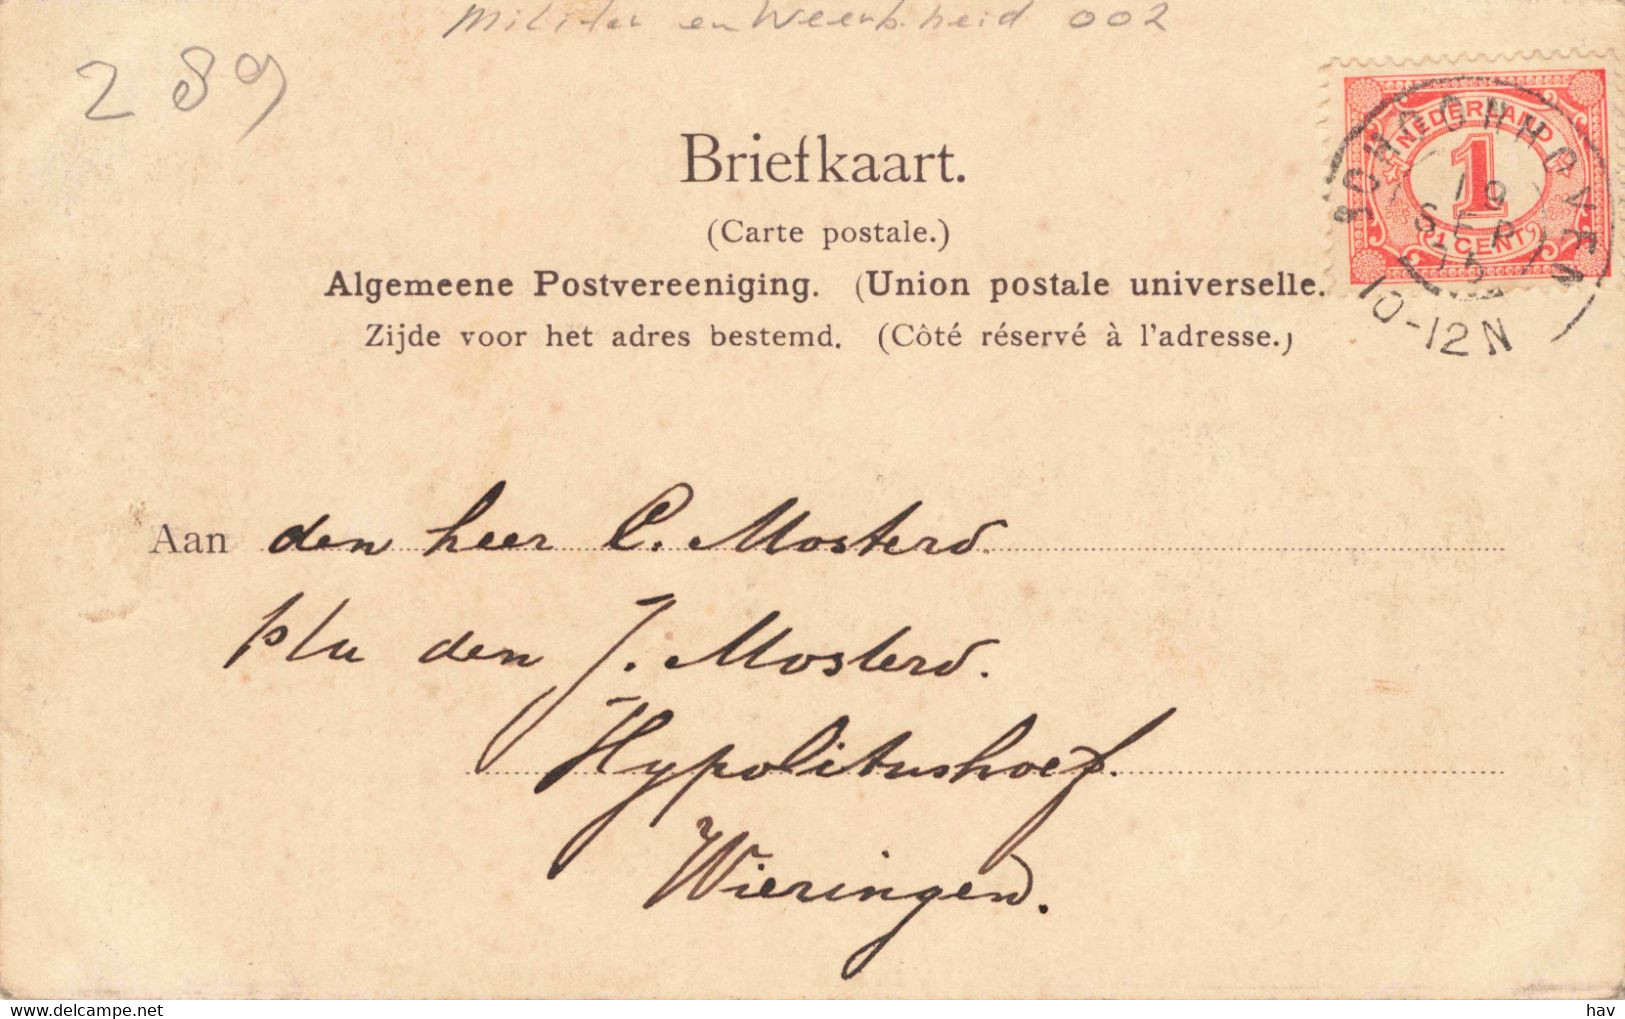 Militair en Weerbaarheid 002
289
Briefkaart.
(Carte postale.)
Algemeene Postvereeniging. (Union postale universelle.
Zijde voor het adres bestemd. (Côté réservé à l'adresse.)
NEDERLAND
1
1 CENT
SCHOONHOVEN
19
SEP
15
10-12N
Aan den heer C. Mosterd.
p/a den J. Mosterd.
Hypolitushoef.
Wieringen.
www.delcampe.net
hav